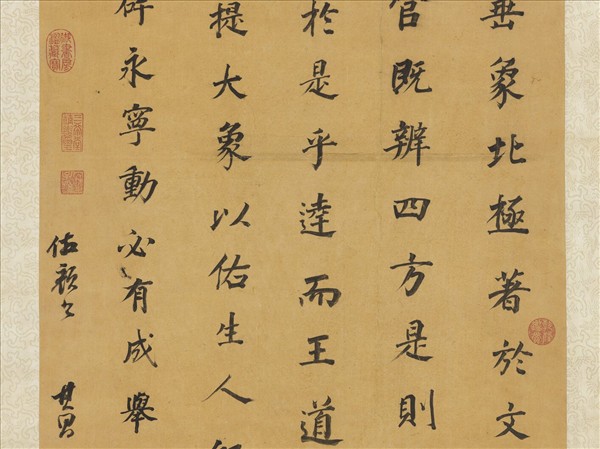 垂象北極著於文
官既辨四方是則
於是乎達而王道
提大象以佑生人
俾永寧動必有成舉
仿顏書 其昌